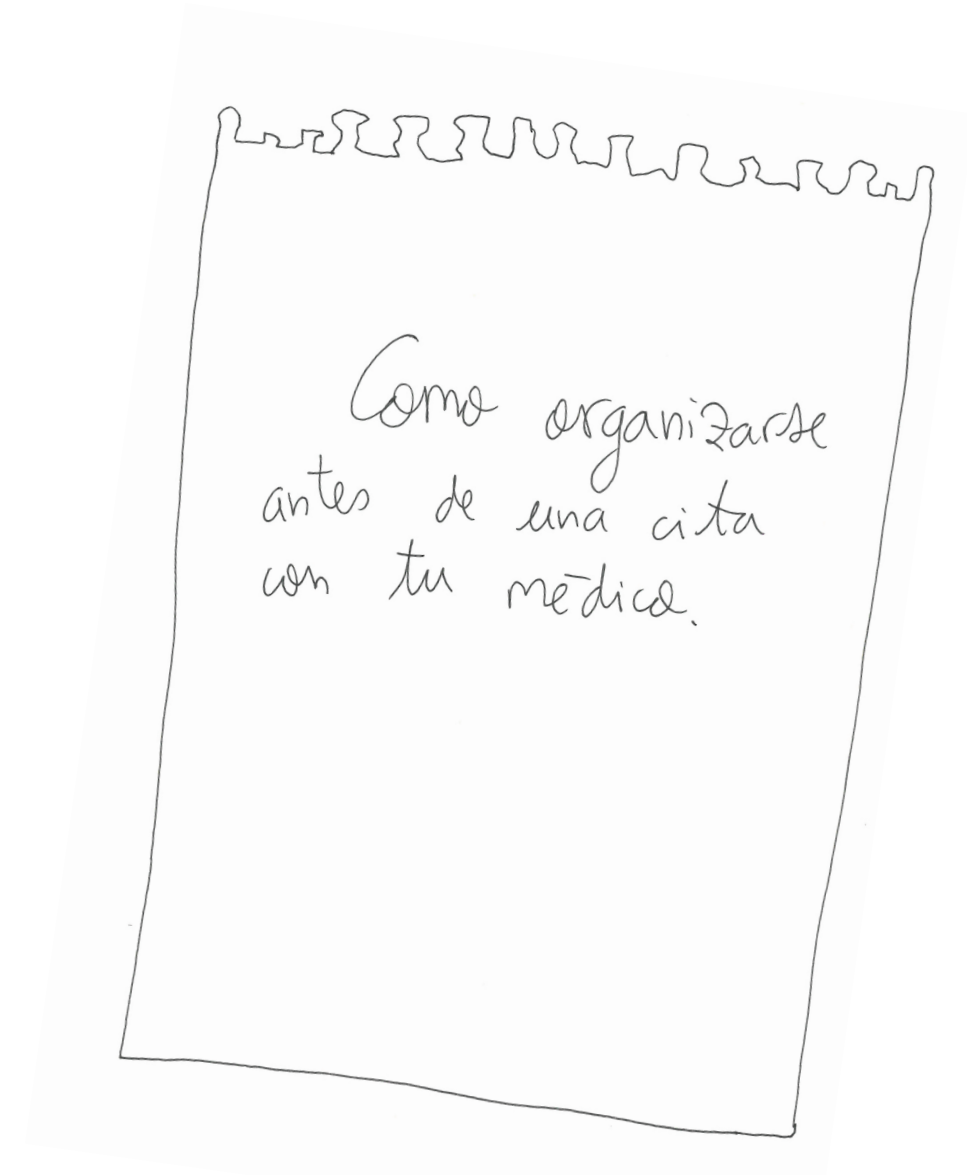 Como organizarse
antes de una cita
con tu médico.